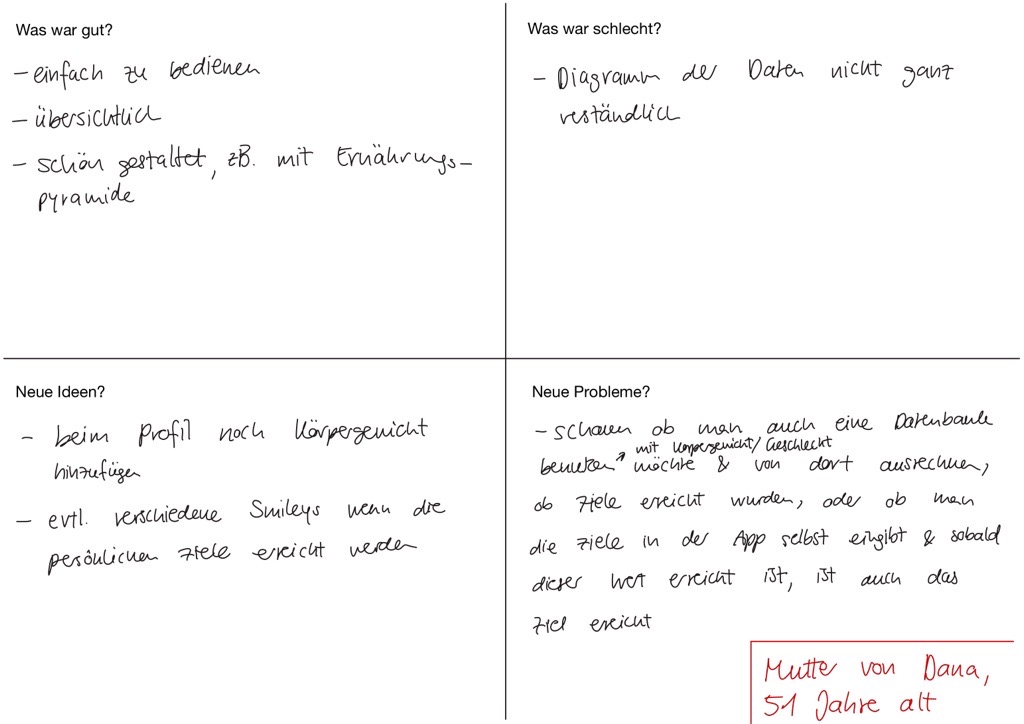 Was war gut?
– einfach zu bedienen
– übersichtlich
– schön gestaltet, zB. mit Ernährungs–
pyramide
Was war schlecht?
– Diagramm der Daten nicht ganz
veständlich
Neue Ideen?
– beim Profil noch Körpergewicht
hinzufügen
– evtl. verschiedene Smileys wenn die
persönlichen Ziele erreicht werden
Neue Probleme?
– schauen ob man auch eine Datenbank
mit Körpergewicht/Geschlecht
benutzen möchte & von dort ausrechnen,
ob Ziele erreicht wurden, oder ob man
die Ziele in der App selbst eingibt & sobald
dieser Wert erreicht ist, ist auch das
Ziel erreicht
Mutter von Dana,
51 Jahre alt